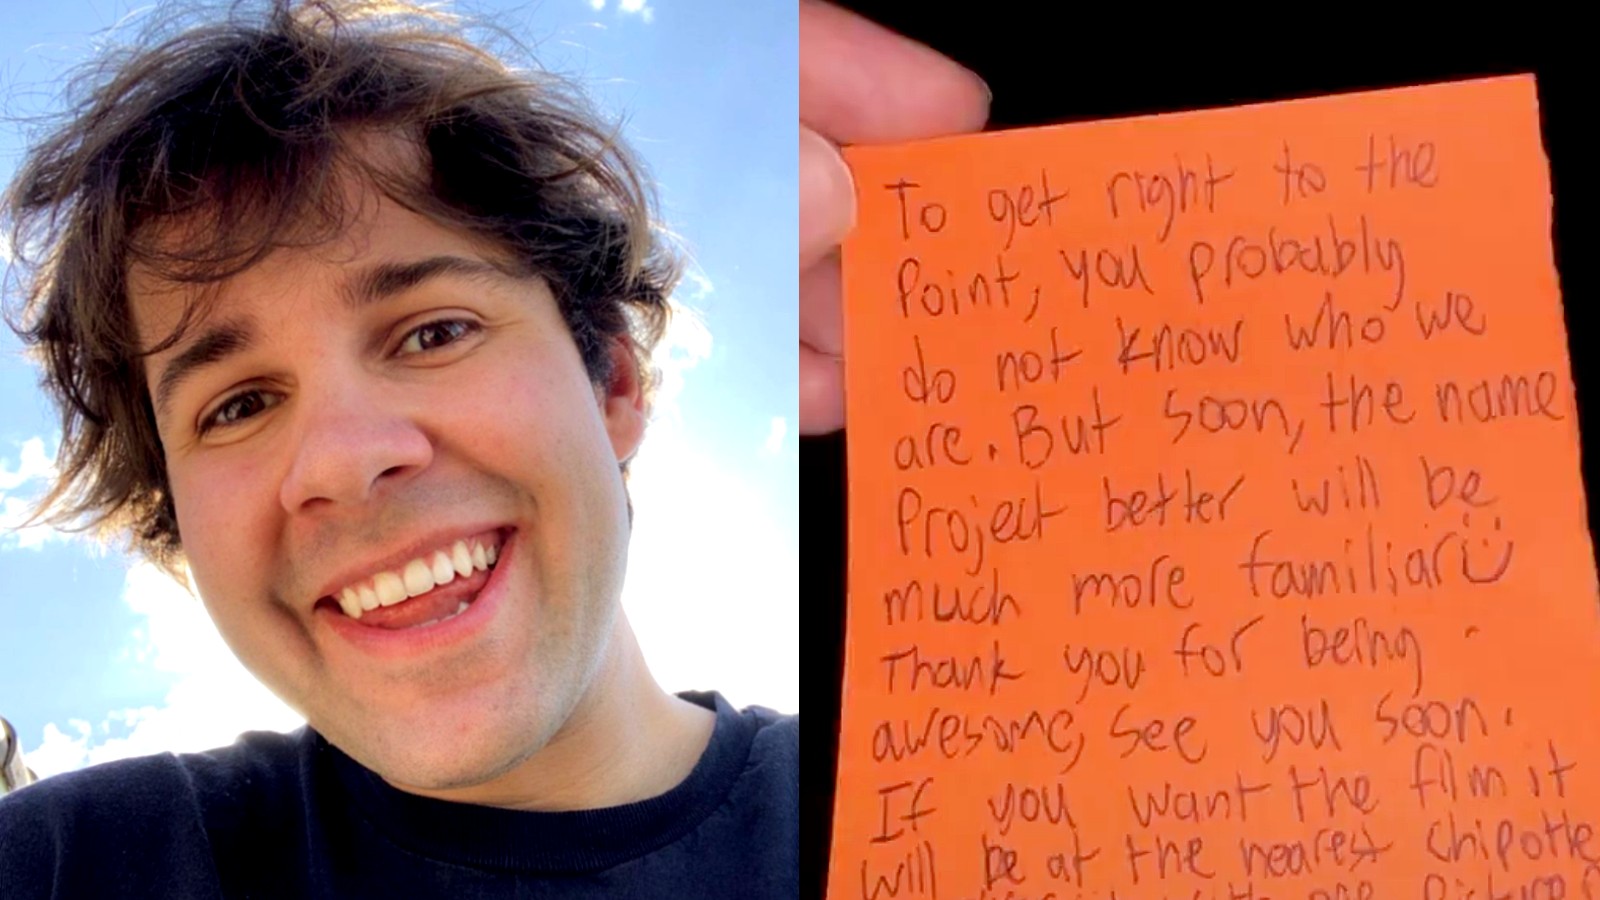 To get right to the
Point, you probably
do not know who we
are. But soon, the name
Project better will be
much more familiar
Thank you for being
awesome, see you soon.
If you want the film it
will be at the nearest chipotle
with one picture